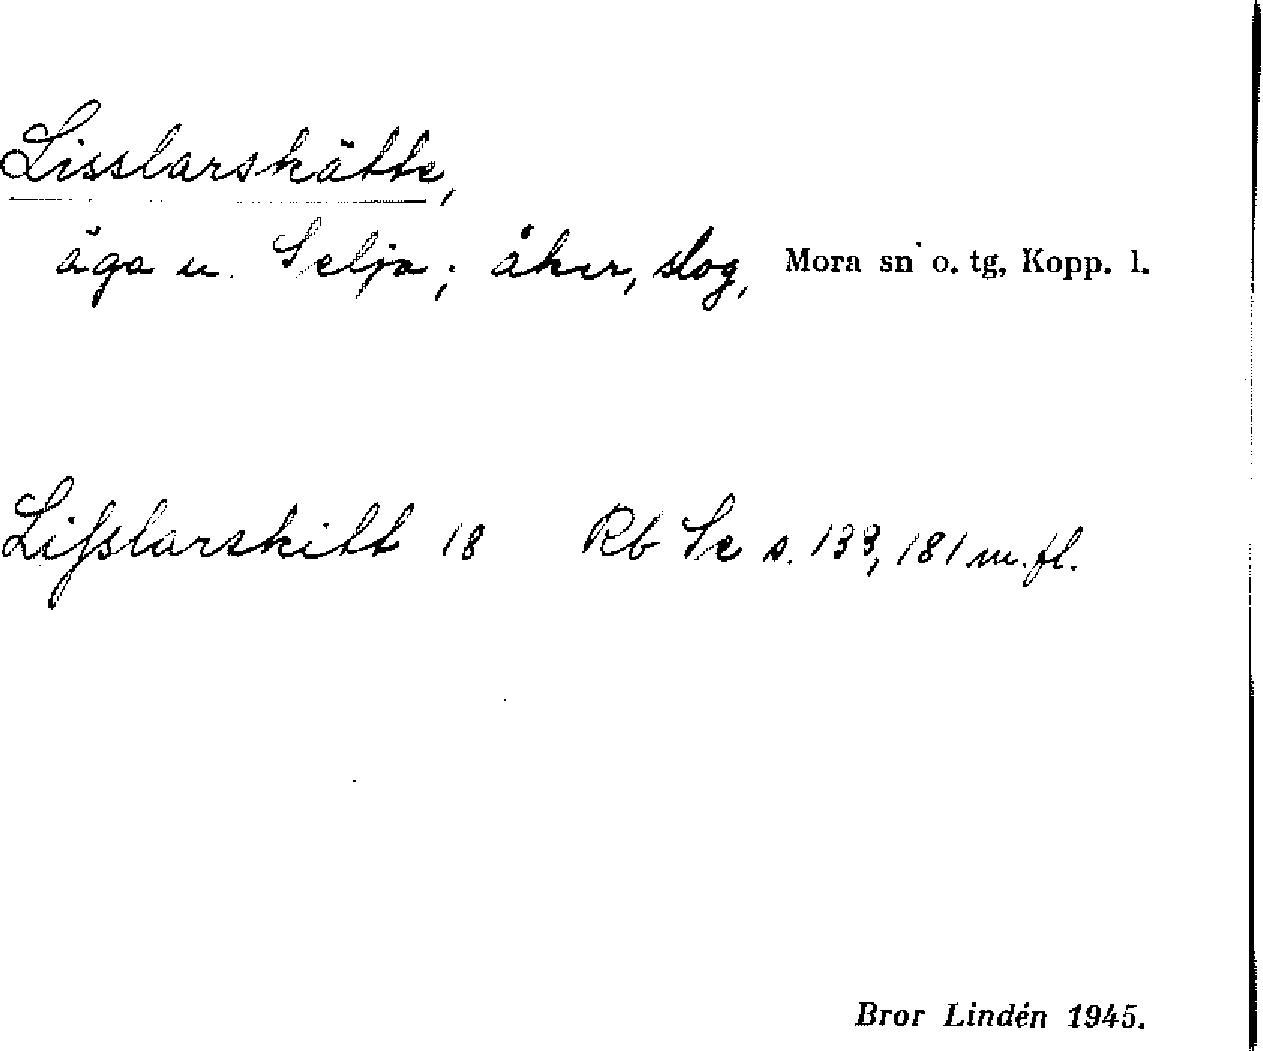 Lisslarskätte,
äga u. Selja; åker, slog, Mora sn o. tg, Kopp. l.
Lifslarskitt 18 Rb Se s. 133, 181 m. fl.
Bror Lindén 1945.